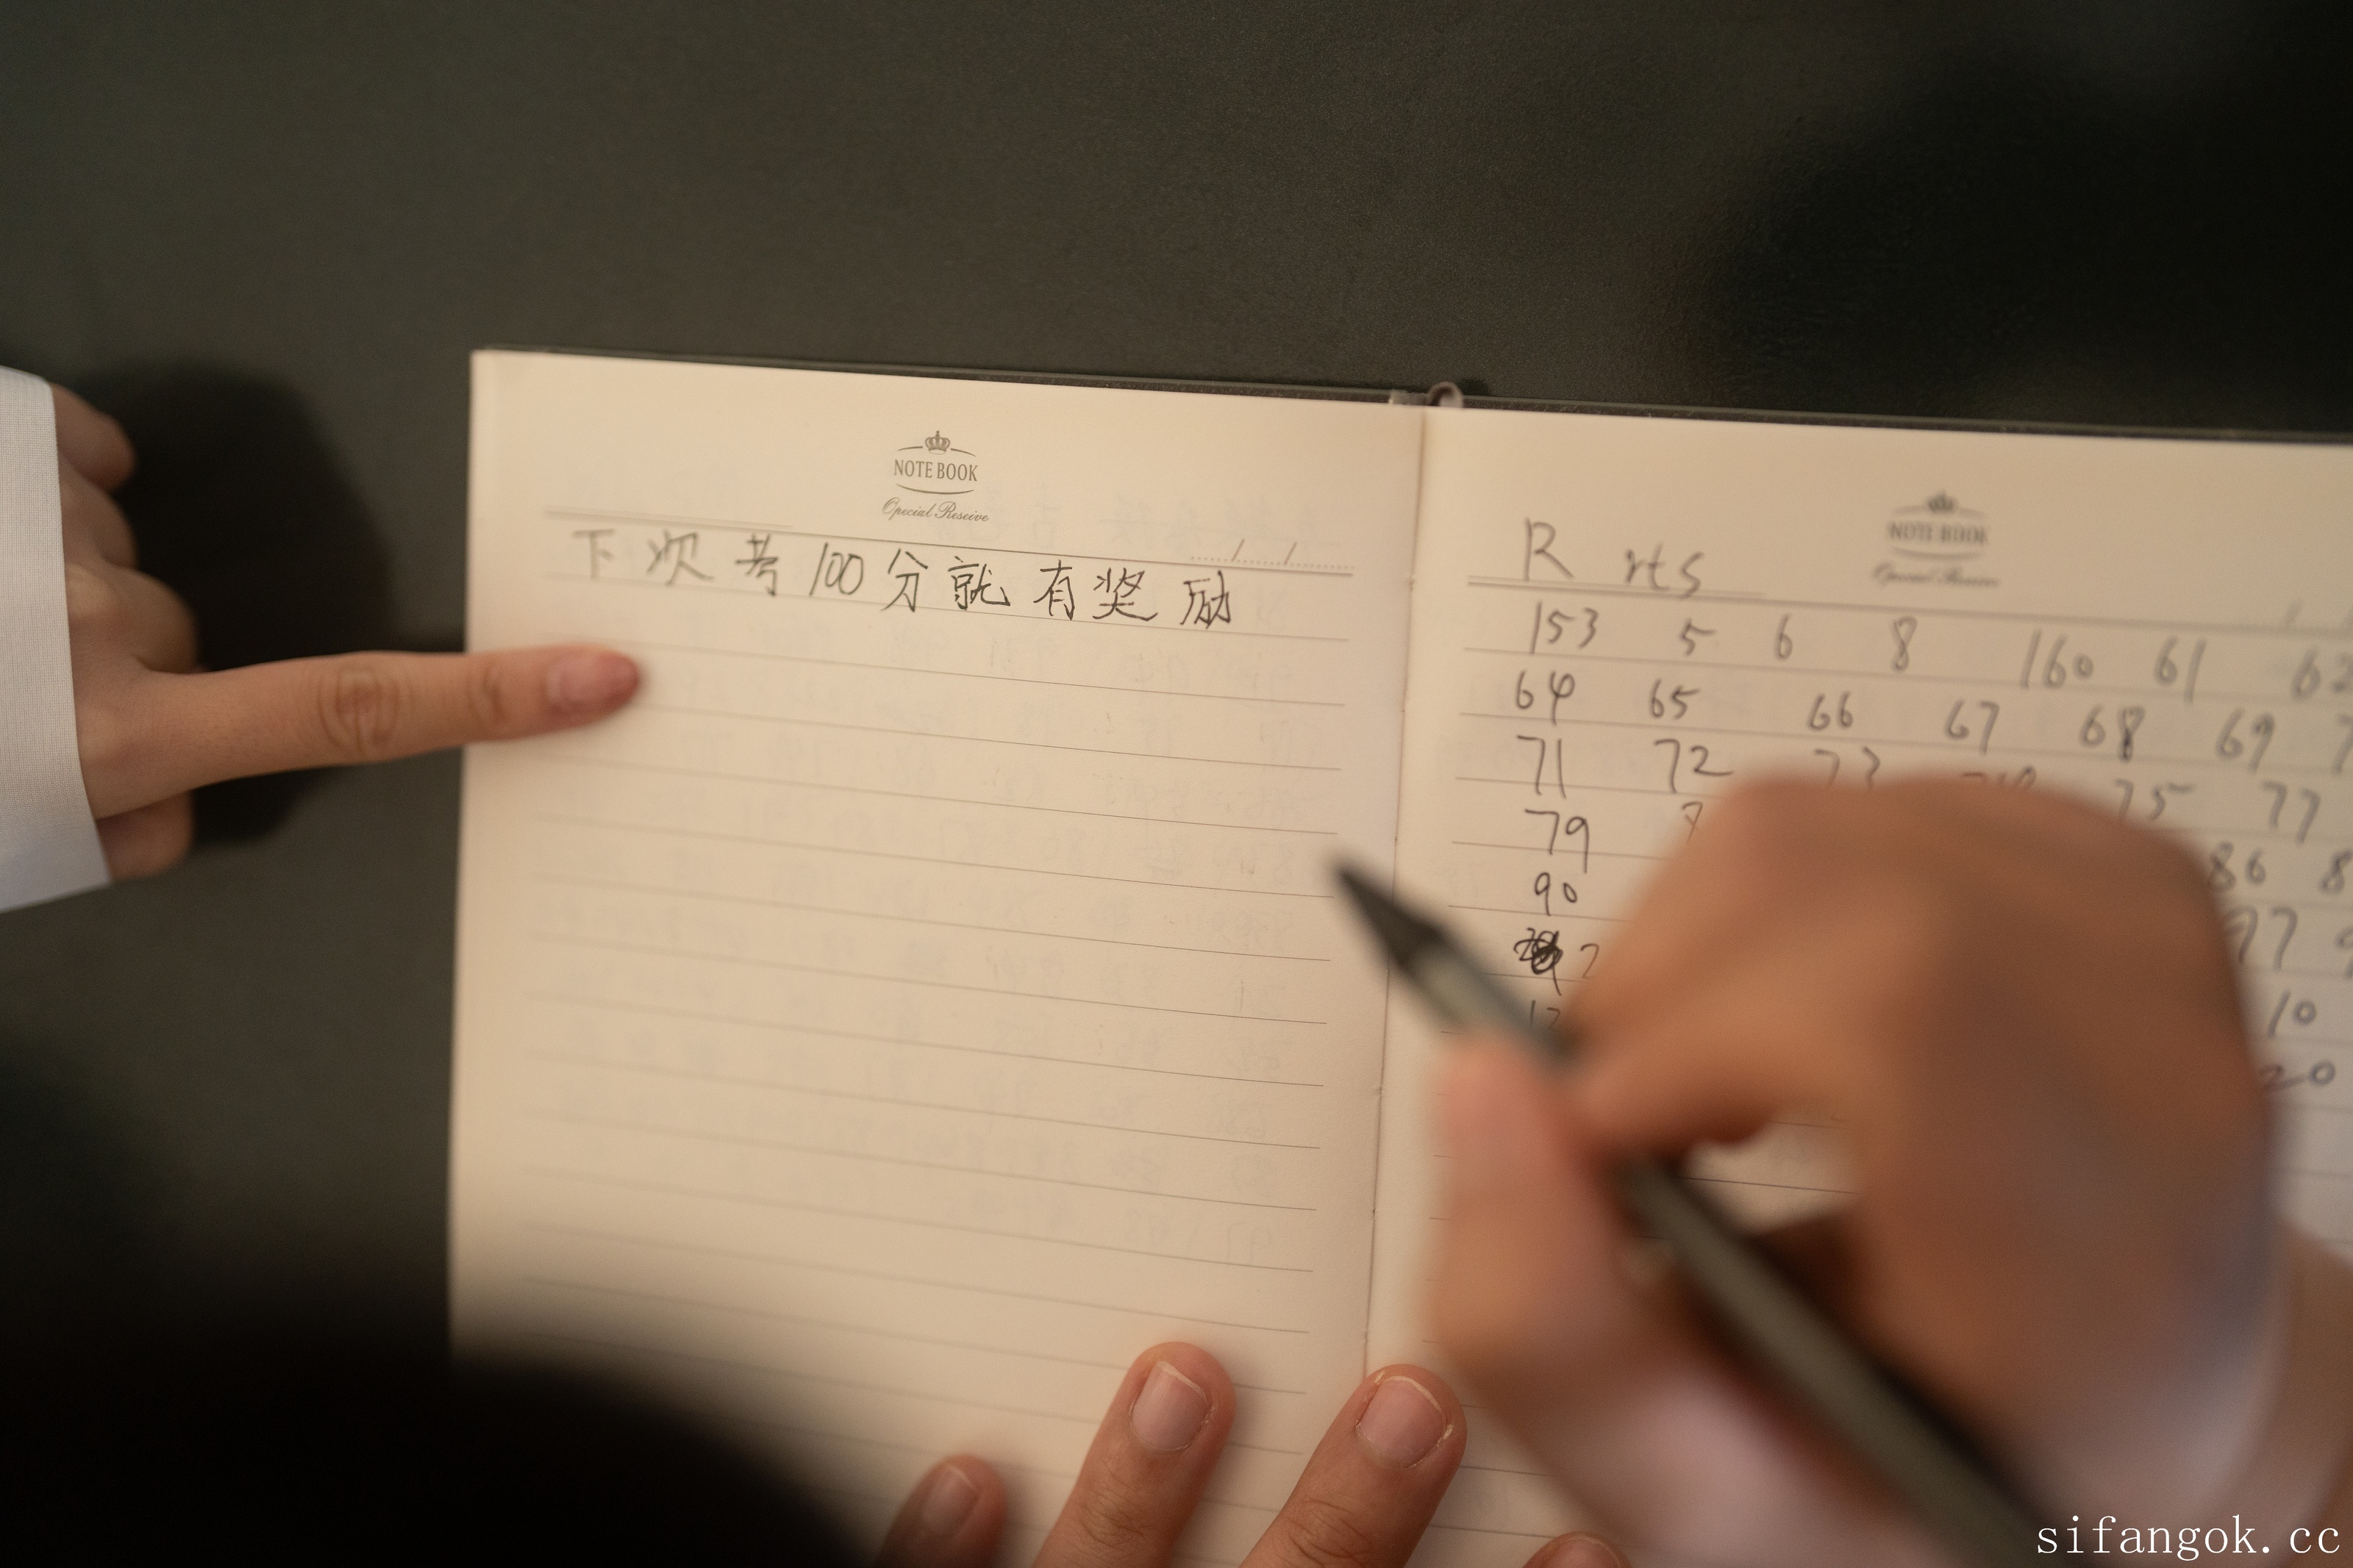 NOTE BOOK
Opecial Reseive
下次考100分就有奖励
NOTE BOOK
Opecial Reseive
R rts
153 5 6 8 160 61 62
64 65 66 67 68 69 7
71 72 73 75 77
79
90 86 8
97 9
12 10
20
sifangok.cc